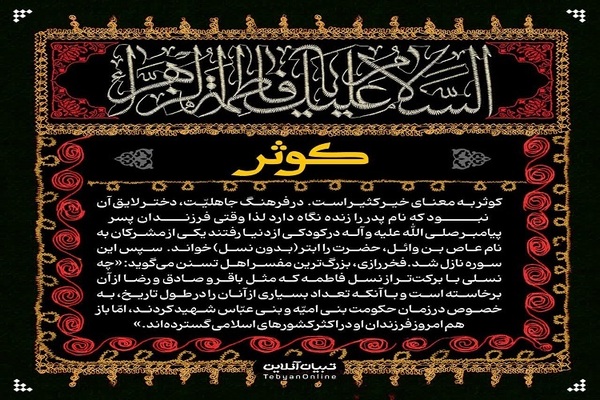 السلام علیک یا فاطمة الزهرا
کوثر
کوثر به معنای خیر کثیر است. در فرهنگ جاهلیّت، دختر لایق آن
نبود که نام پدر را زنده نگاه دارد لذا وقتی فرزندان پسر
پیامبر صلی الله علیه و آله در کودکی از دنیا رفتند یکی از مشرکان به
نام عاص بن وائل، حضرت را ابتر (بدون نسل) خواند. سپس این
سوره نازل شد. فخررازی، بزرگ‌ترین مفسر اهل تسنن می‌گوید: «چه
نسلی با برکت‌تر از نسل فاطمه که مثل باقر و صادق و رضا از آن
برخاسته است و با آنکه تعداد بسیاری از آنان را در طول تاریخ، به
خصوص در زمان حکومت بنی امیّه و بنی عبّاس شهید کردند، امّا باز
هم امروز فرزندان او در اکثر کشورهای اسلامی گسترده‌اند.»
تبیان آنلاین
TebyanOnline